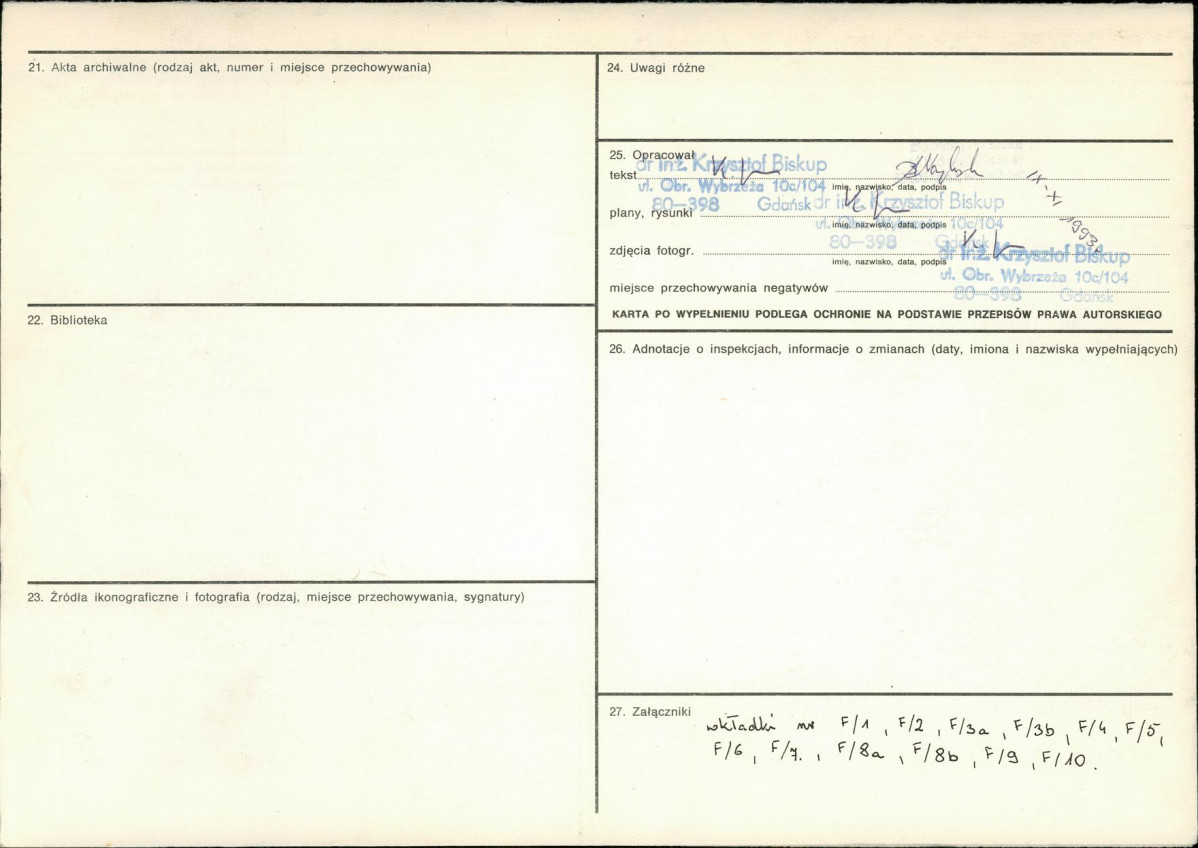 21. Akta archiwalne (rodzaj akt, numer i miejsce przechowywania)
22. Biblioteka
23. Źródła ikonograficzne i fotografia (rodzaj, miejsce przechowywania, sygnatury)
24. Uwagi różne
25. Opracował
dr inż. Krzysztof Biskup
tekst
ul. Obr. Wybrzeża 10c/104
imię, nazwisko, data, podpis
IX-XI 1993
80—398 Gdańsk
dr inż. Krzysztof Biskup
plany, rysunki
ul. Obr. Wybrzeża 10c/104
imię, nazwisko, data, podpis
80—398 Gdańsk
zdjęcia fotogr.
dr inż. Krzysztof Biskup
imię, nazwisko, data, podpis
ul. Obr. Wybrzeża 10c/104
miejsce przechowywania negatywów
80—398 Gdańsk
KARTA PO WYPEŁNIENIU PODLEGA OCHRONIE NA PODSTAWIE PRZEPISÓW PRAWA AUTORSKIEGO
26. Adnotacje o inspekcjach, informacje o zmianach (daty, imiona i nazwiska wypełniających)
27. Załączniki
wkładki nr F/1, F/2, F/3a, F/3b, F/4, F/5,
F/6, F/7., F/8a, F/8b, F/9, F/10.